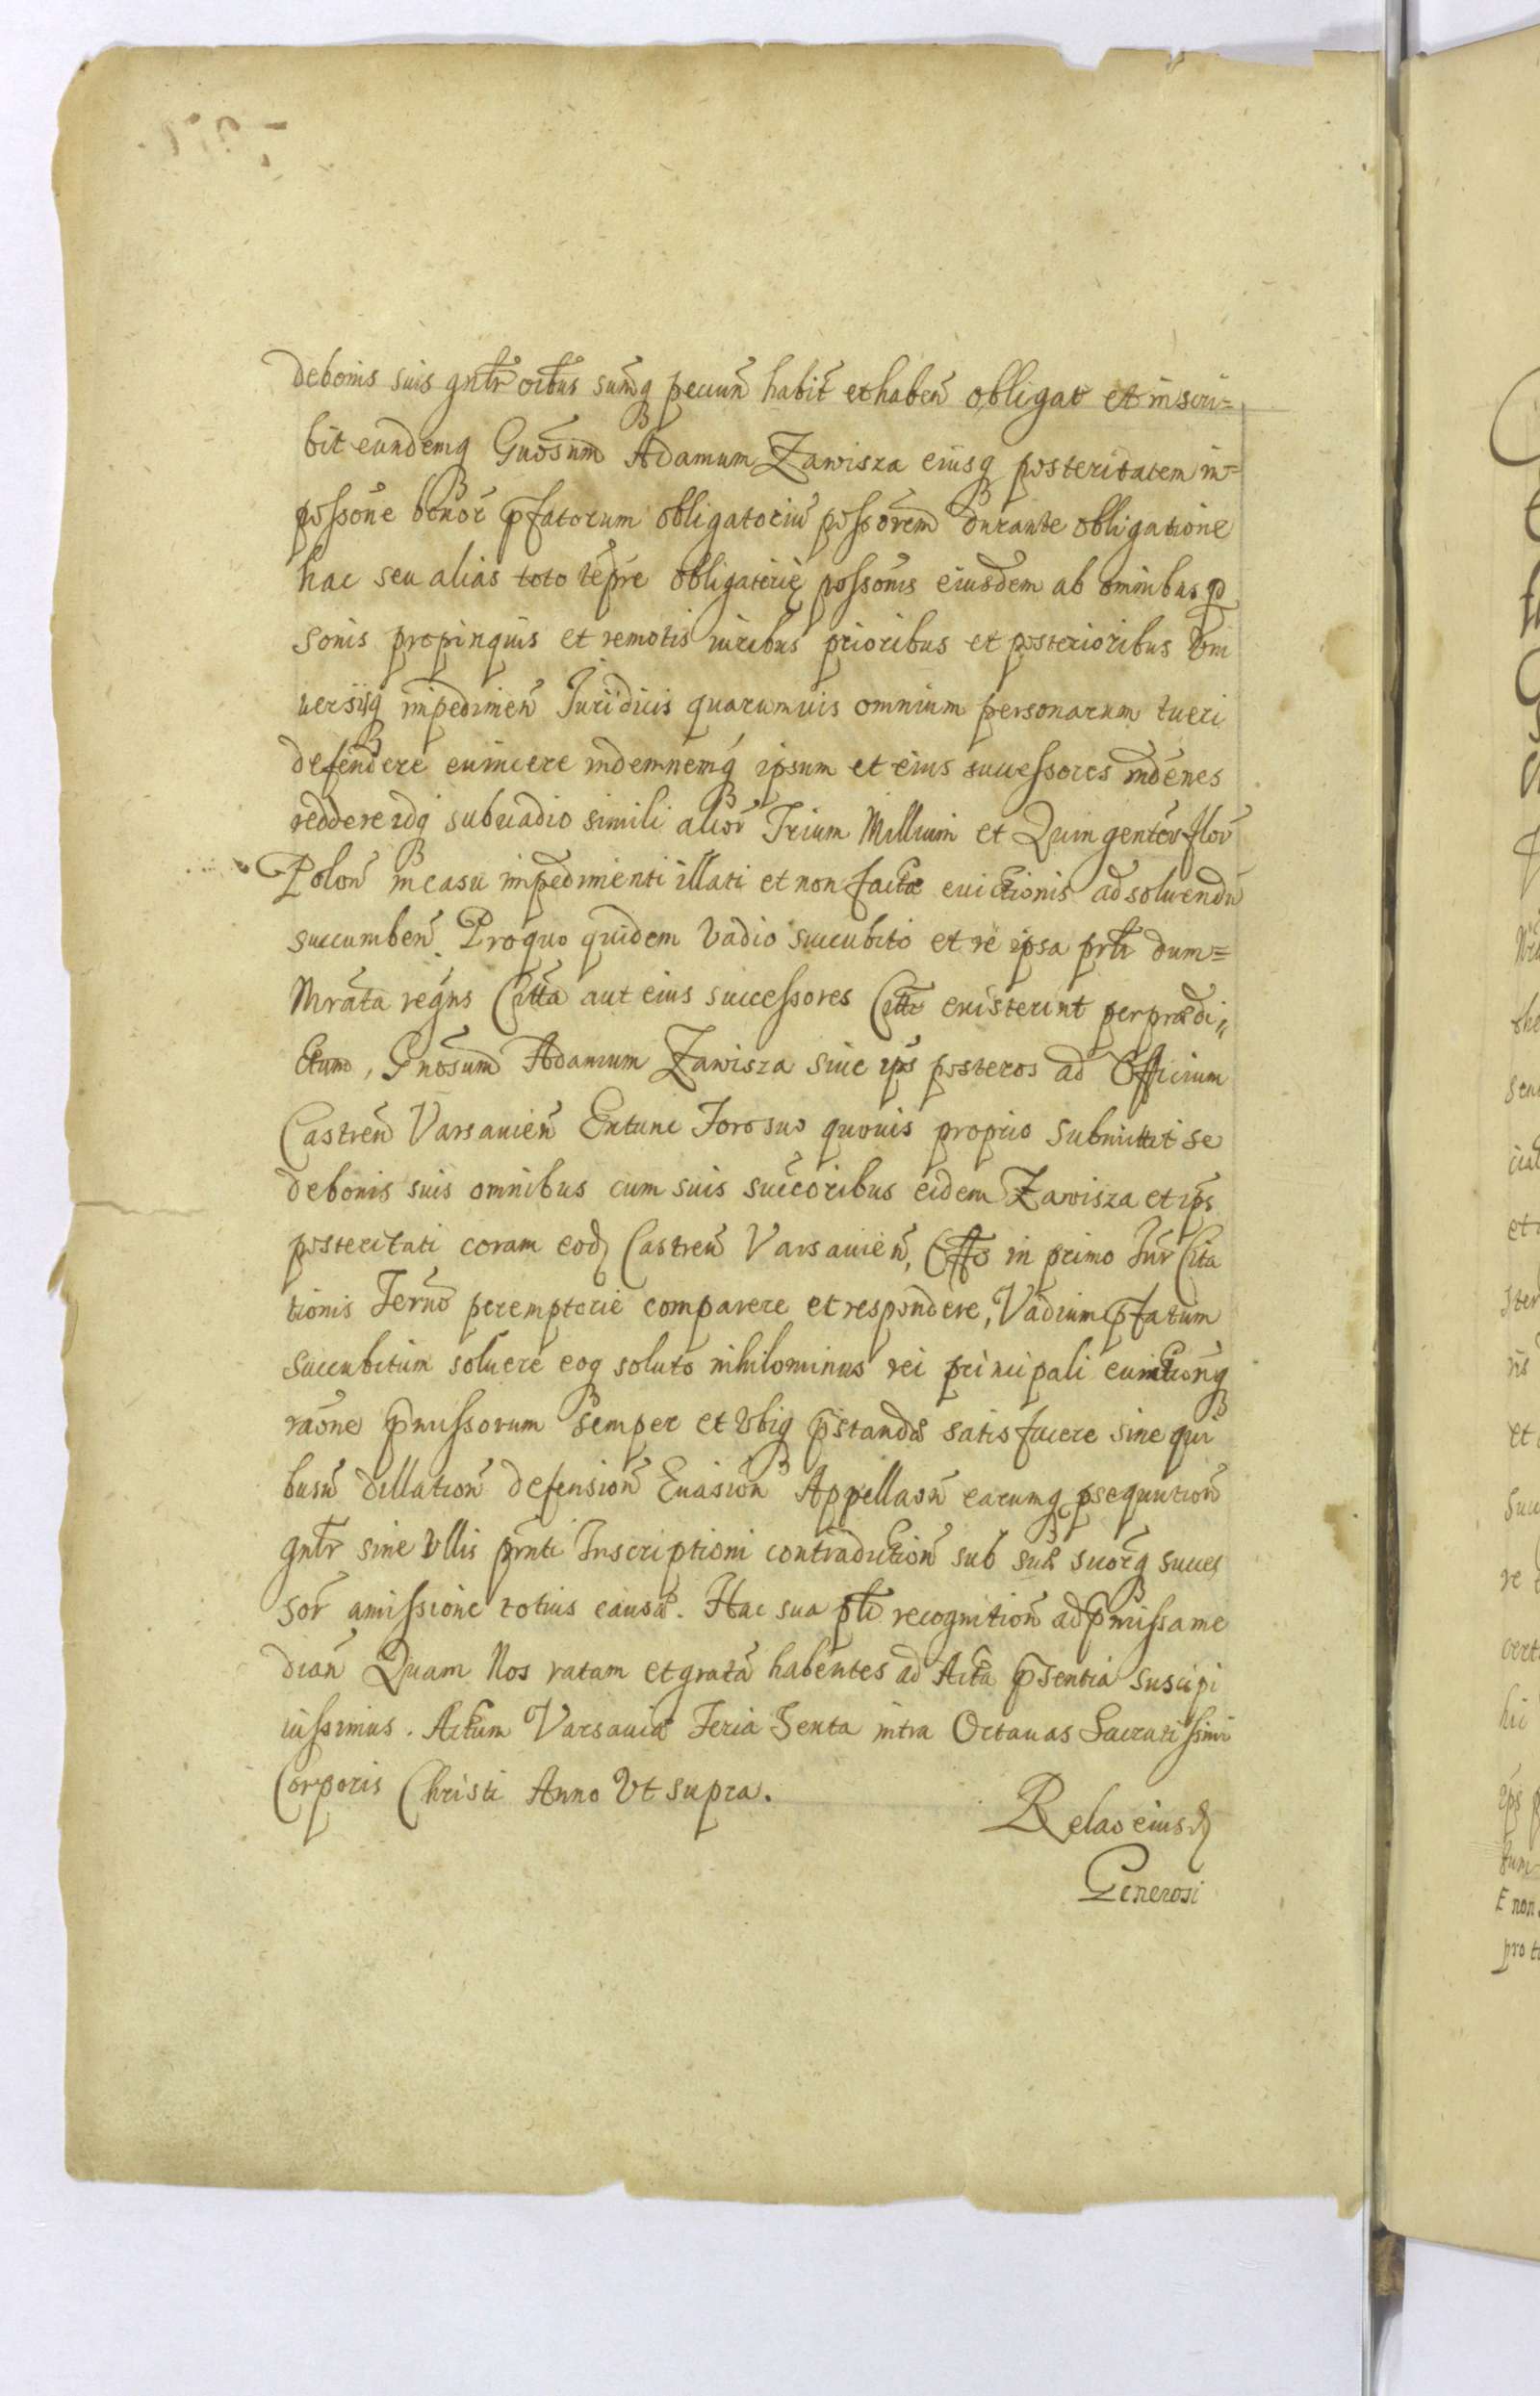 de bonis suis gnlr oibus sumq pecun habit et haben obligat et inscri=
bit eundemq Gnosum Adamum Zawisza eiusq posteritatem in=
possone bonor pfatorum obligatoriu possorem durante obligatione
hac seu alias toto tepre obligatorię possonis eiusdem ab omnibus p
sonis propinquis et remotis iuribus prioribus et posterioribus omi
uersisq impedimen Juridicis quarumuis omnium personarum tueri
defendere euincere indemnemq ipsum et eius successores indenes
reddere idq sub vadio simili alior Trium Millium et Quingentor flor
Polon in casu impedimenti illati et non factæ euictionis ad soluendu
succumben. Pro quo quidem Vadio succubito et re ipsa prli dum=
Mrata regns Citta aut eius successores Citti extiterint per prædi,,
ctum, Gnosum Adamum Zawisza siue ips posteros ad Officium
Castren Varsauien Extunc Foro suo quouis proprio submittet se
de bonis suis omnibus cum suis succoribus eidem Zawisza et ips
posteritati coram eod Castren Varsauien, Offo in primo Jur Cita
tionis Termo peremptorie comparere et respondere, Vadium pfatum
succubitum soluere eoq soluto nihilominus rei principali euictionq
raone pmissorum semper et vbiq pstandæ satisfacere sine qui
busu dillation defension Euasion Appellaon earumq psequution
gnlr sine vllis prnti Inscriptioni contradiction sub sua suorq succes
sor amissione totius causæ. Hac sua pli recognition ad pmissa me
dian Quam Nos ratam et grata habentes ad Acta psentia suscipi
iussimus. Actum Varsauiæ Feria Sexta intra Octauas Sacratissimi
Corporis Christi Anno Vt supra.
Relao eiusd
Generosi